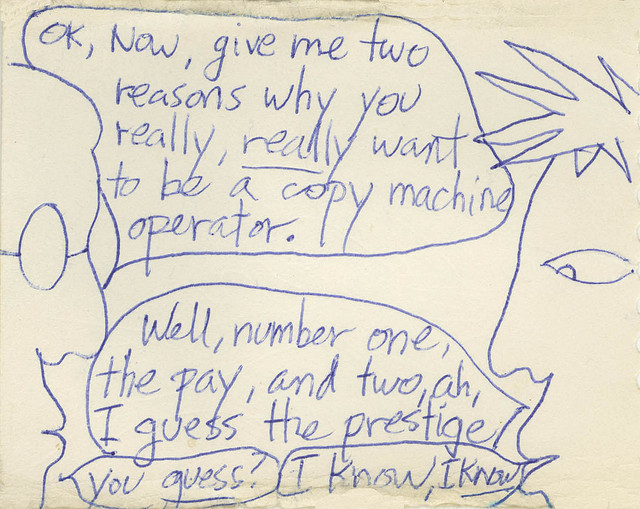 OK, Now, give me two
reasons why you
really, really want
to be a copy machine
operator.
Well, number one,
the pay, and two, ah,
I guess the prestige.
you guess?
I know, I know